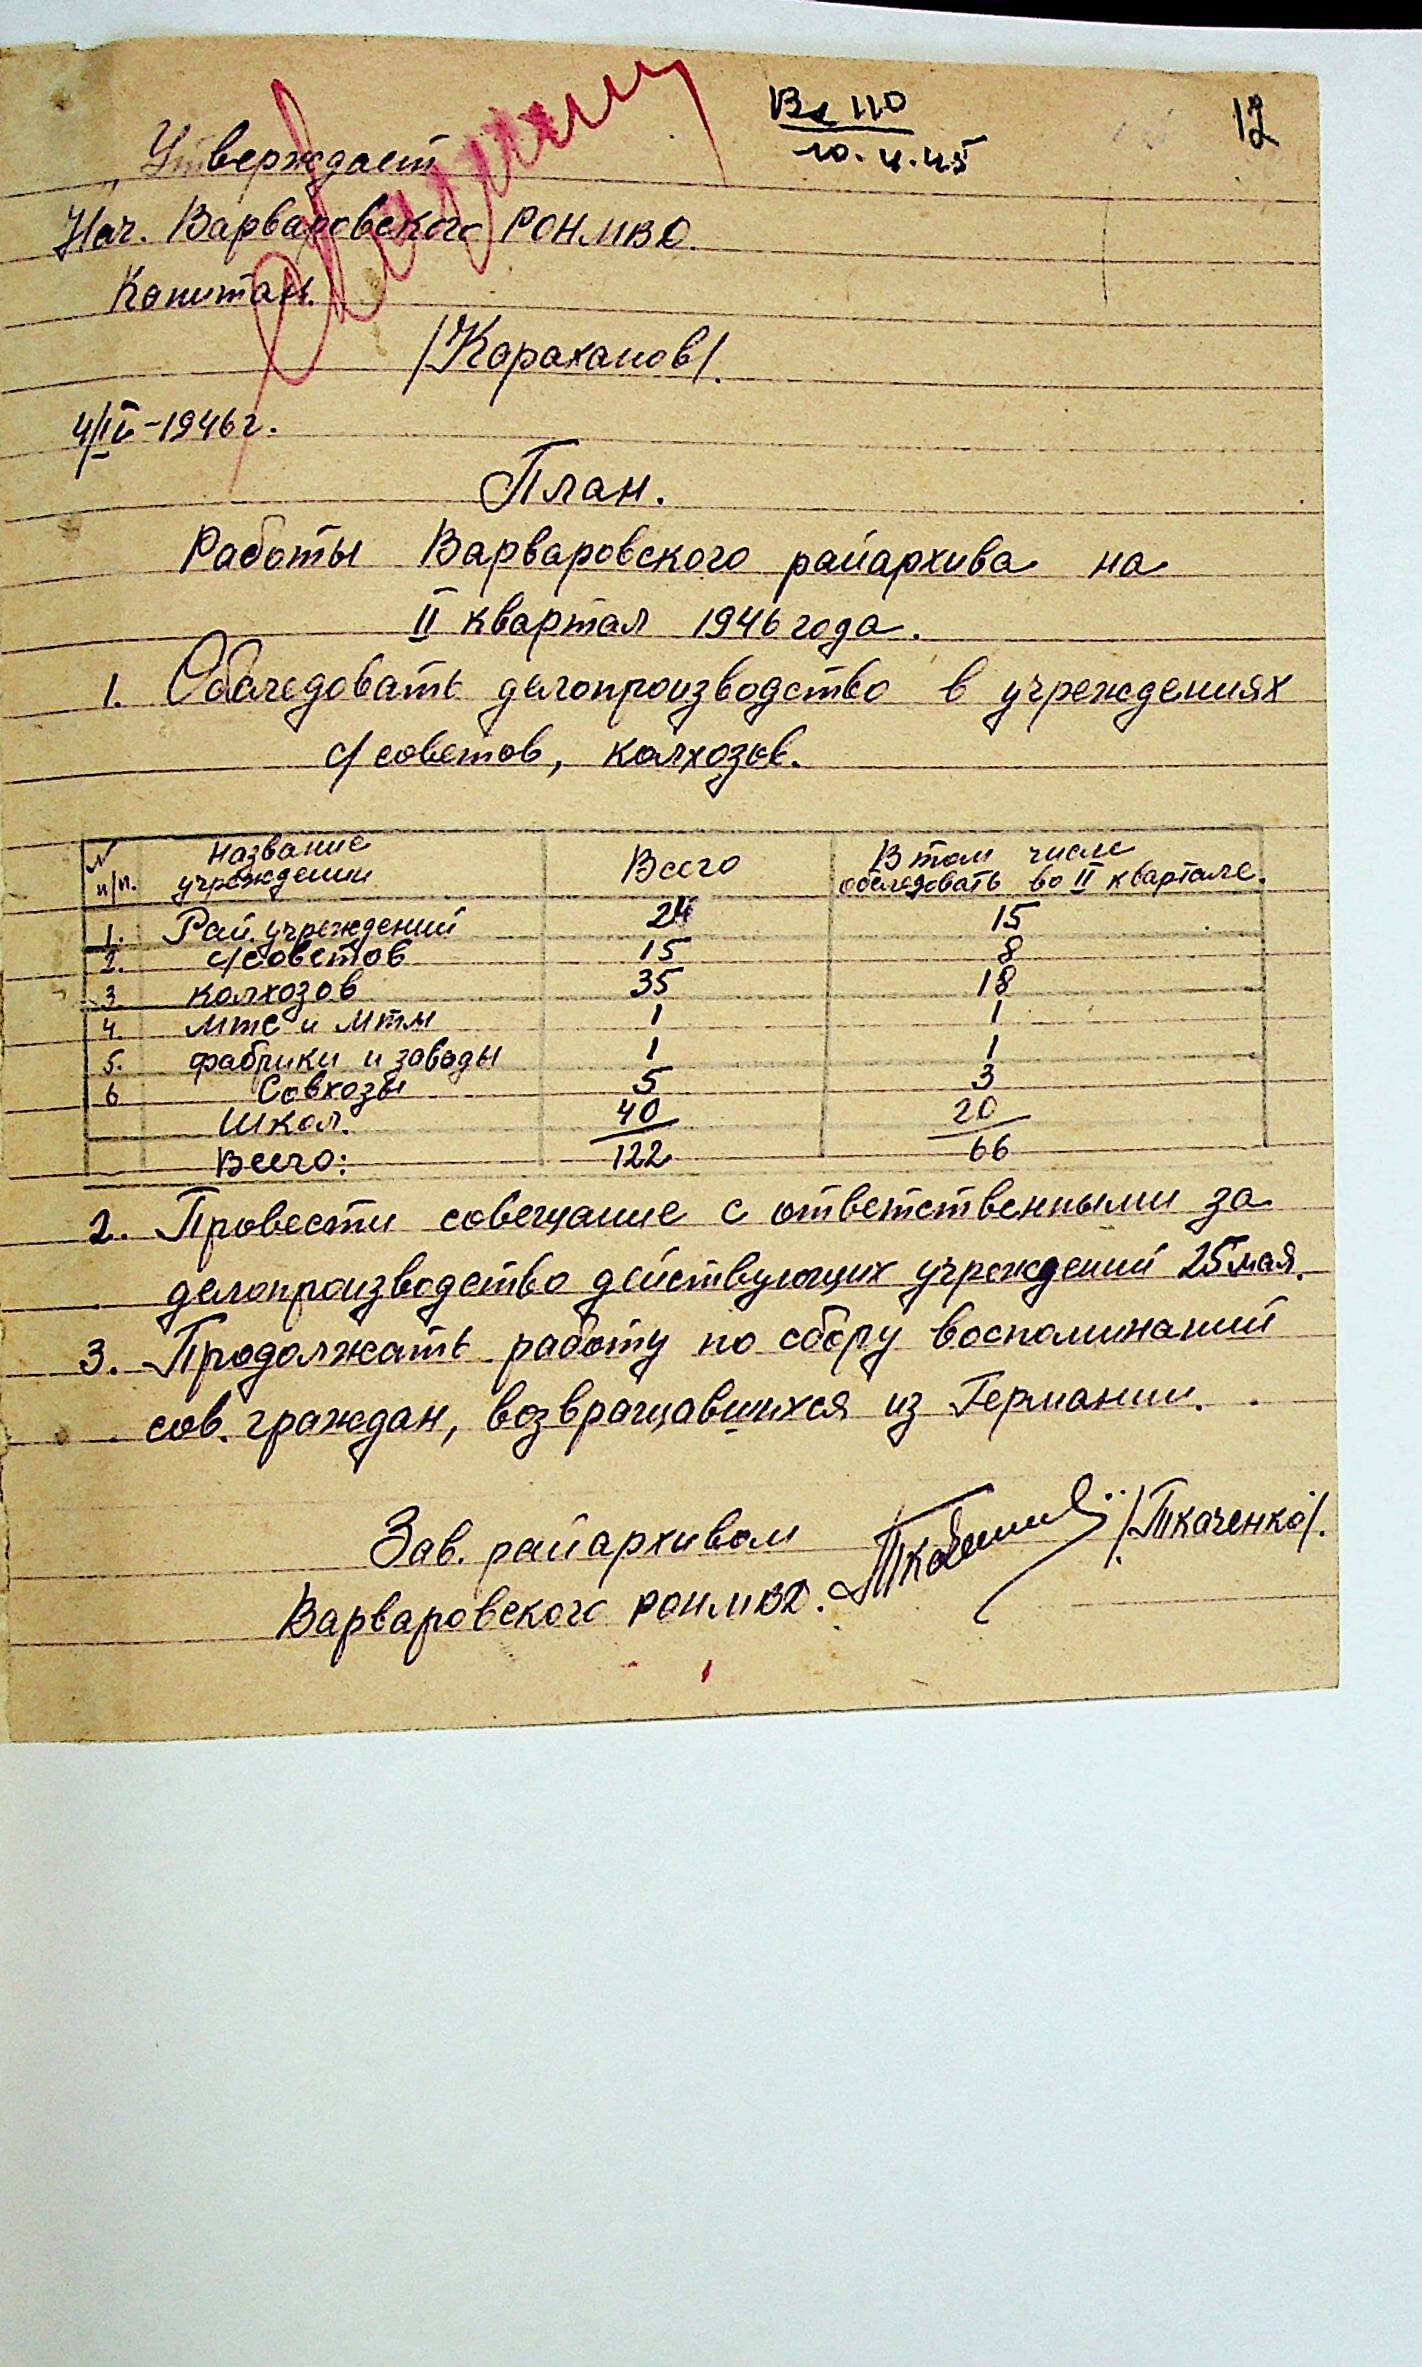 Вх 110
10.4.45
12
„Утверждает
Нач. Варваровского РОНМВД.
Капитан.
/Караханов/.
4/IV-1946г.
План.
Работы Варваровского райархива на
II квартал 1946 года.
1. Обследовать делопроизводство в учреждениях
с/советов, колхозов.
№ п/п. Название учреждении Всего В том числе обследовать во II квартале.
1. Рай. учреждений 24 15
2. с/советов 15 8
3. колхозов 35 18
4. мтс и мтм 1 1
5. фабрики и заводы 1 1
6 Совхозы 5 3
Школ. 40 20
Всего: 122 66
2. Провести совещание с ответственными за
делопроизводство действующих учреждений 25 мая.
3. Продолжать работу по сбору воспоминаний
сов. граждан, возвращавшихся из Германии.
Зав. райархивом /Ткаченко/.
Варваровского РОНМВД.